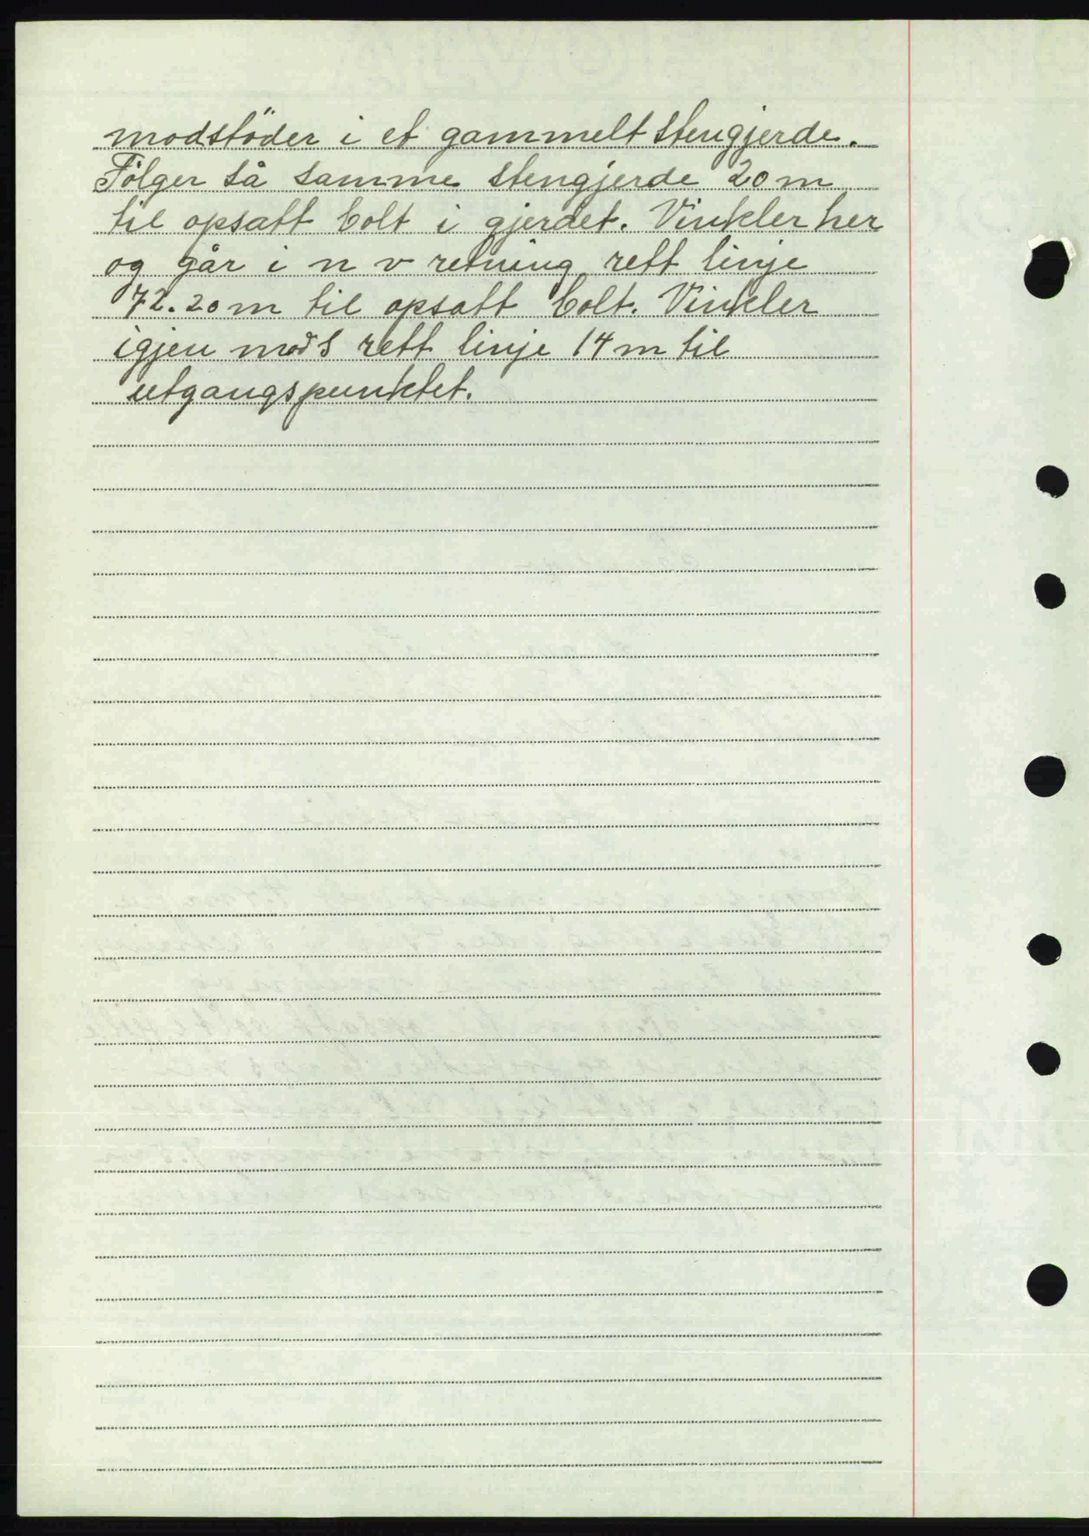 modstöder i et gammelt stengjerde.
Fölger så samme stengjerde 20 m
til opsatt bolt i gjerdet. Vinkler her
og går i n v retning rett linje
72.20 m til opsatt bolt. Vinkler
igjen mods rett linje 14 m til
utgangspunktet.